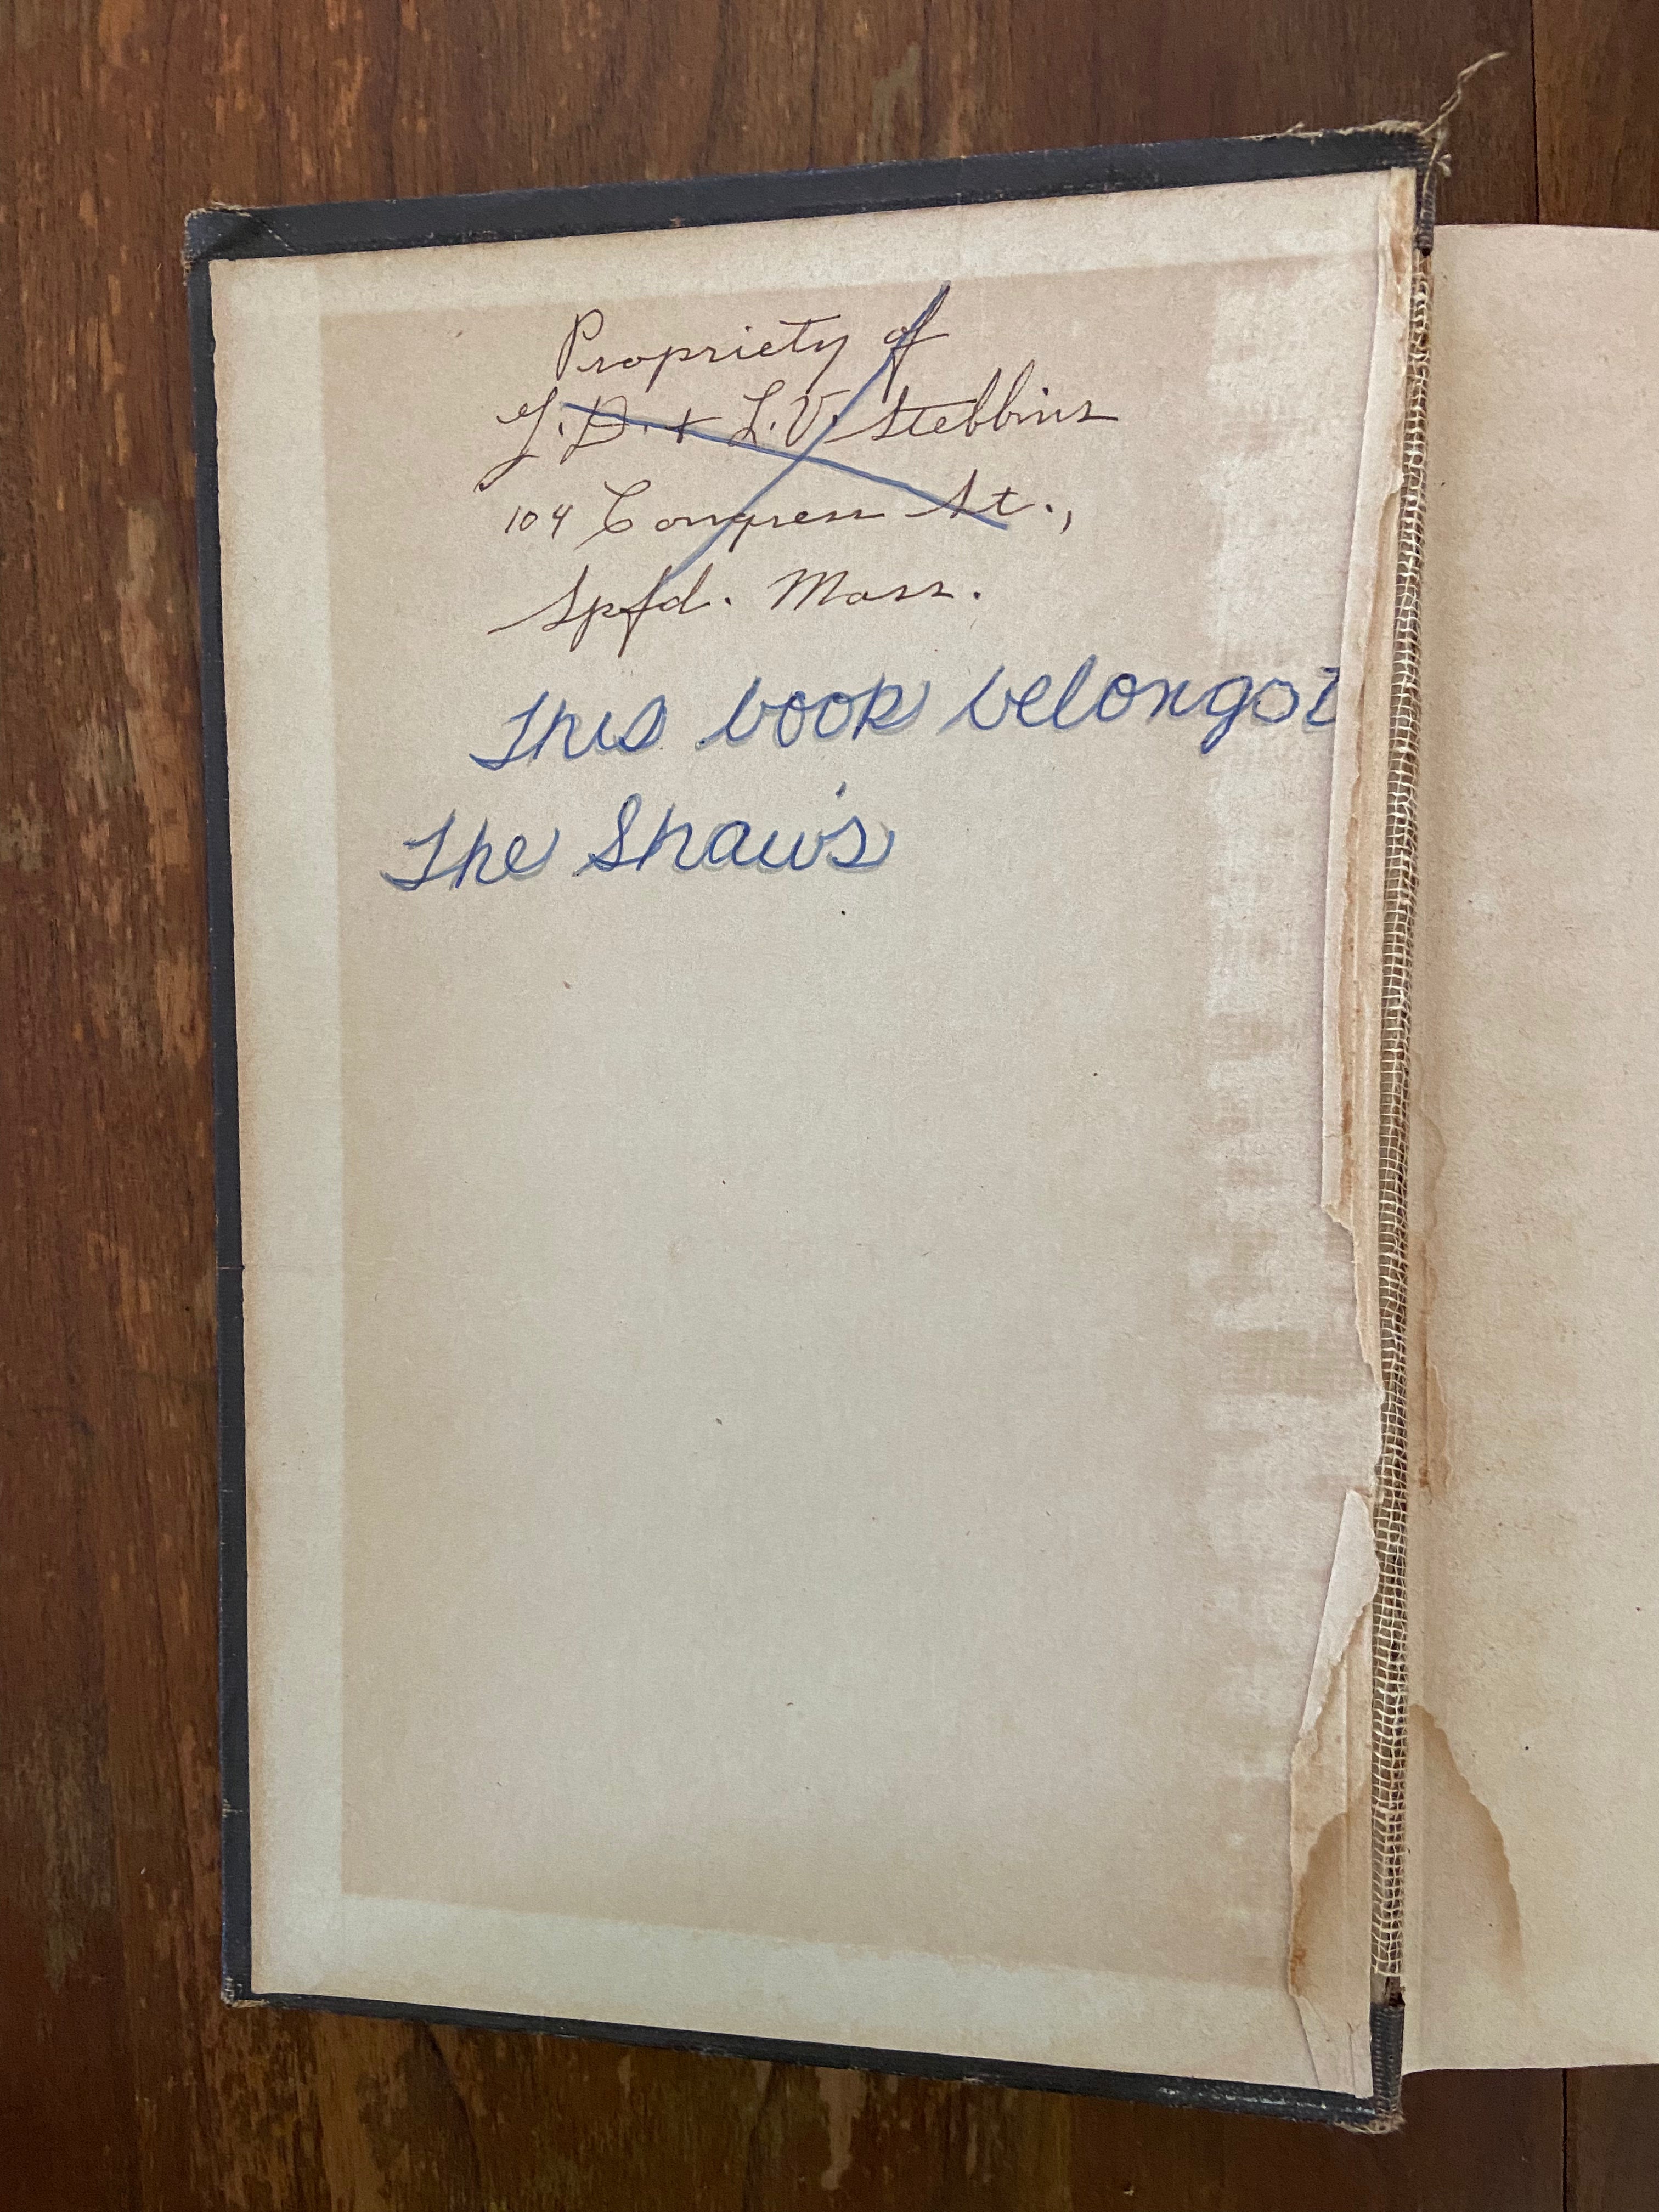 Propriety of
J. D. + L. V. Stebbins
104 Congress St.,
Spfd. Mass.
This book belongs t
The Shaw's